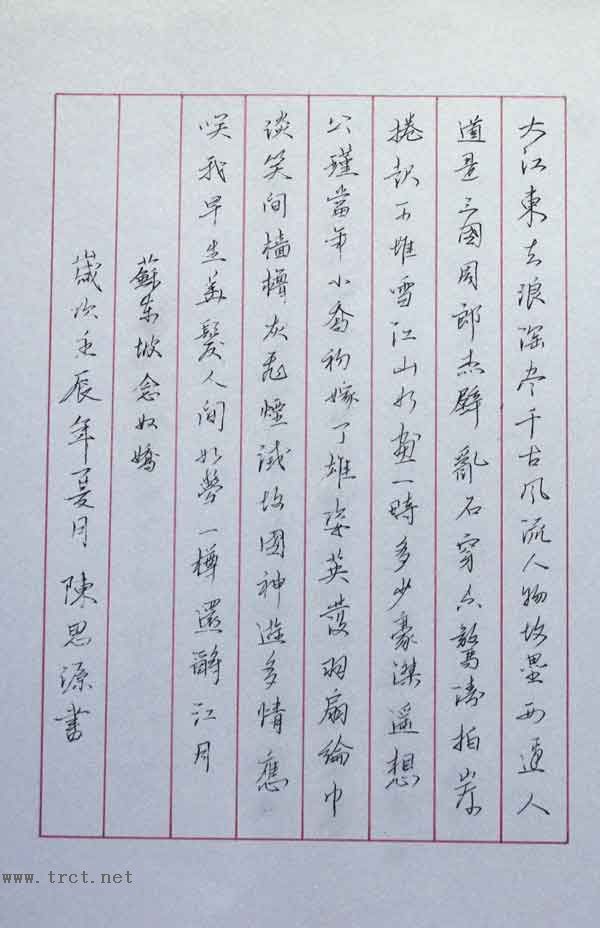 大江東去浪淘尽千古风流人物故垒西邊人
道是三國周郎赤壁亂石穿空驚濤拍岸
捲起千堆雪江山如畫一時多少豪傑遥想
公瑾當年小喬初嫁了雄姿英發羽扇綸巾
谈笑间檣櫓灰飛煙滅故國神遊多情應
咲我早生華髮人间如夢一樽還酹江月
蘇东坡念奴嬌
歲次壬辰年夏月陳思源書
www.trct.net